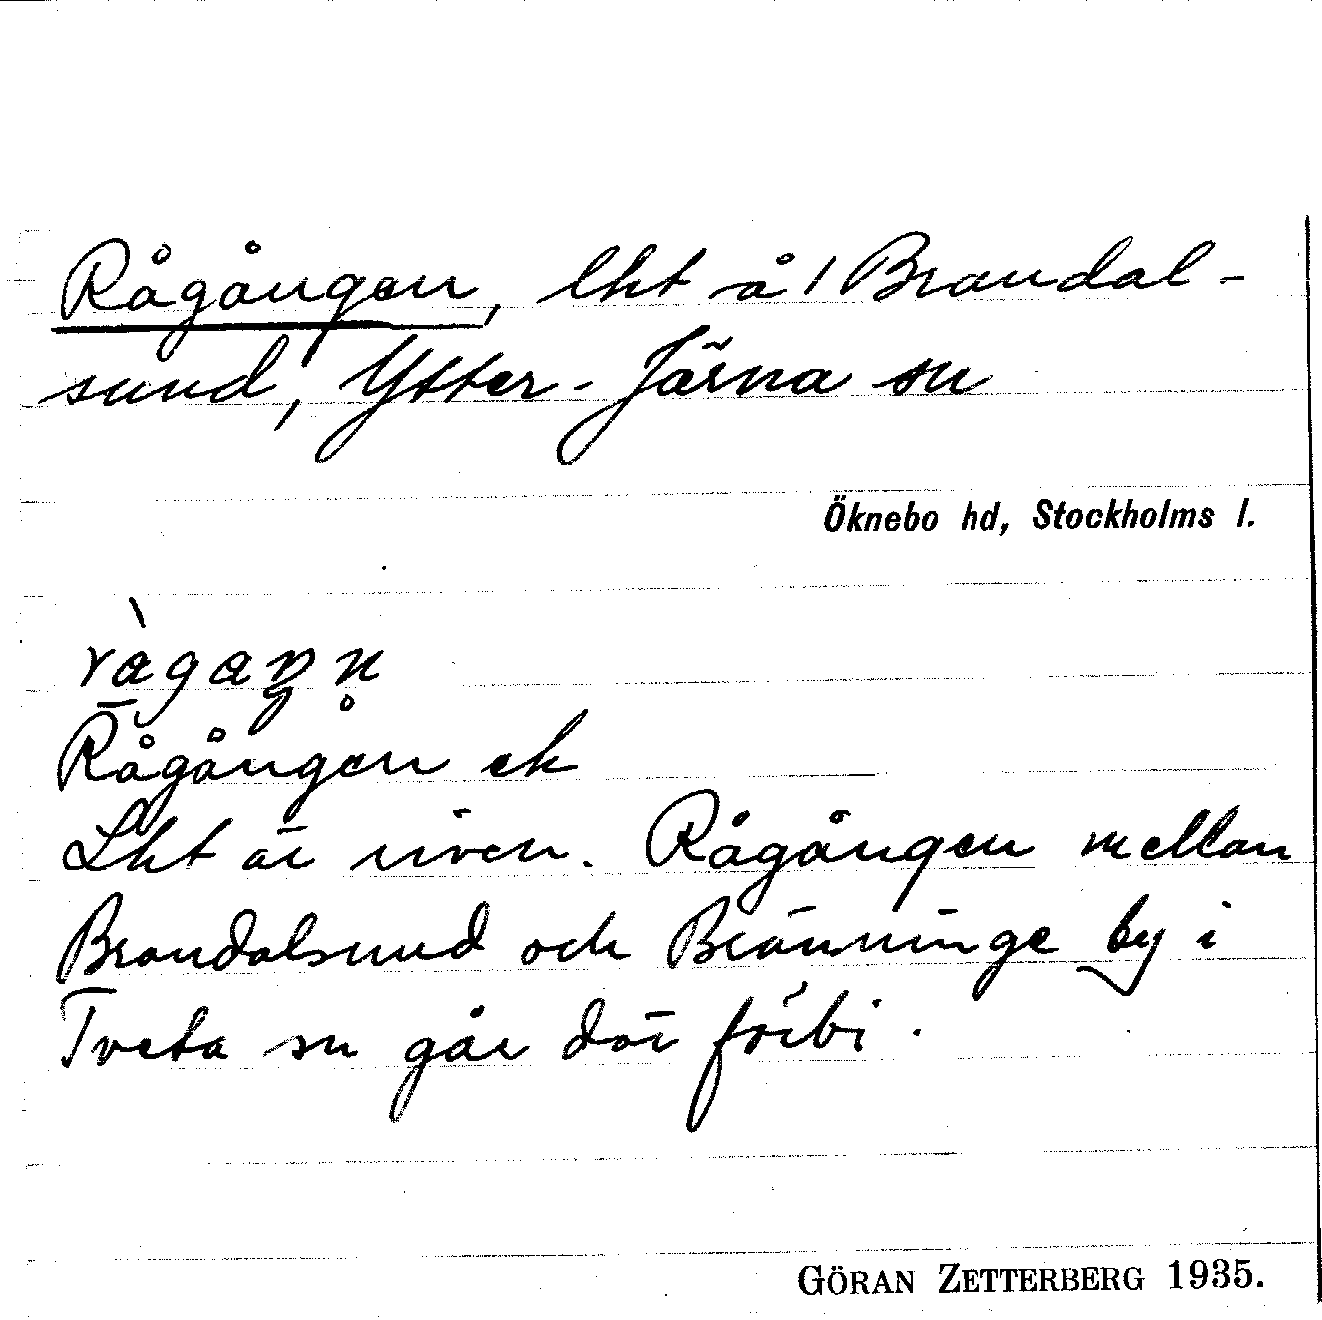 Rågången, lht å 1 Brandal-
sund, Ytter-Järna sn
Öknebo hd, Stockholms l.
Rågången ek
Lht är riven. Rågången mellan
Brandalsund och Bränninge by i
Tveta sn går där förbi.
GÖRAN ZETTERBERG 1935.